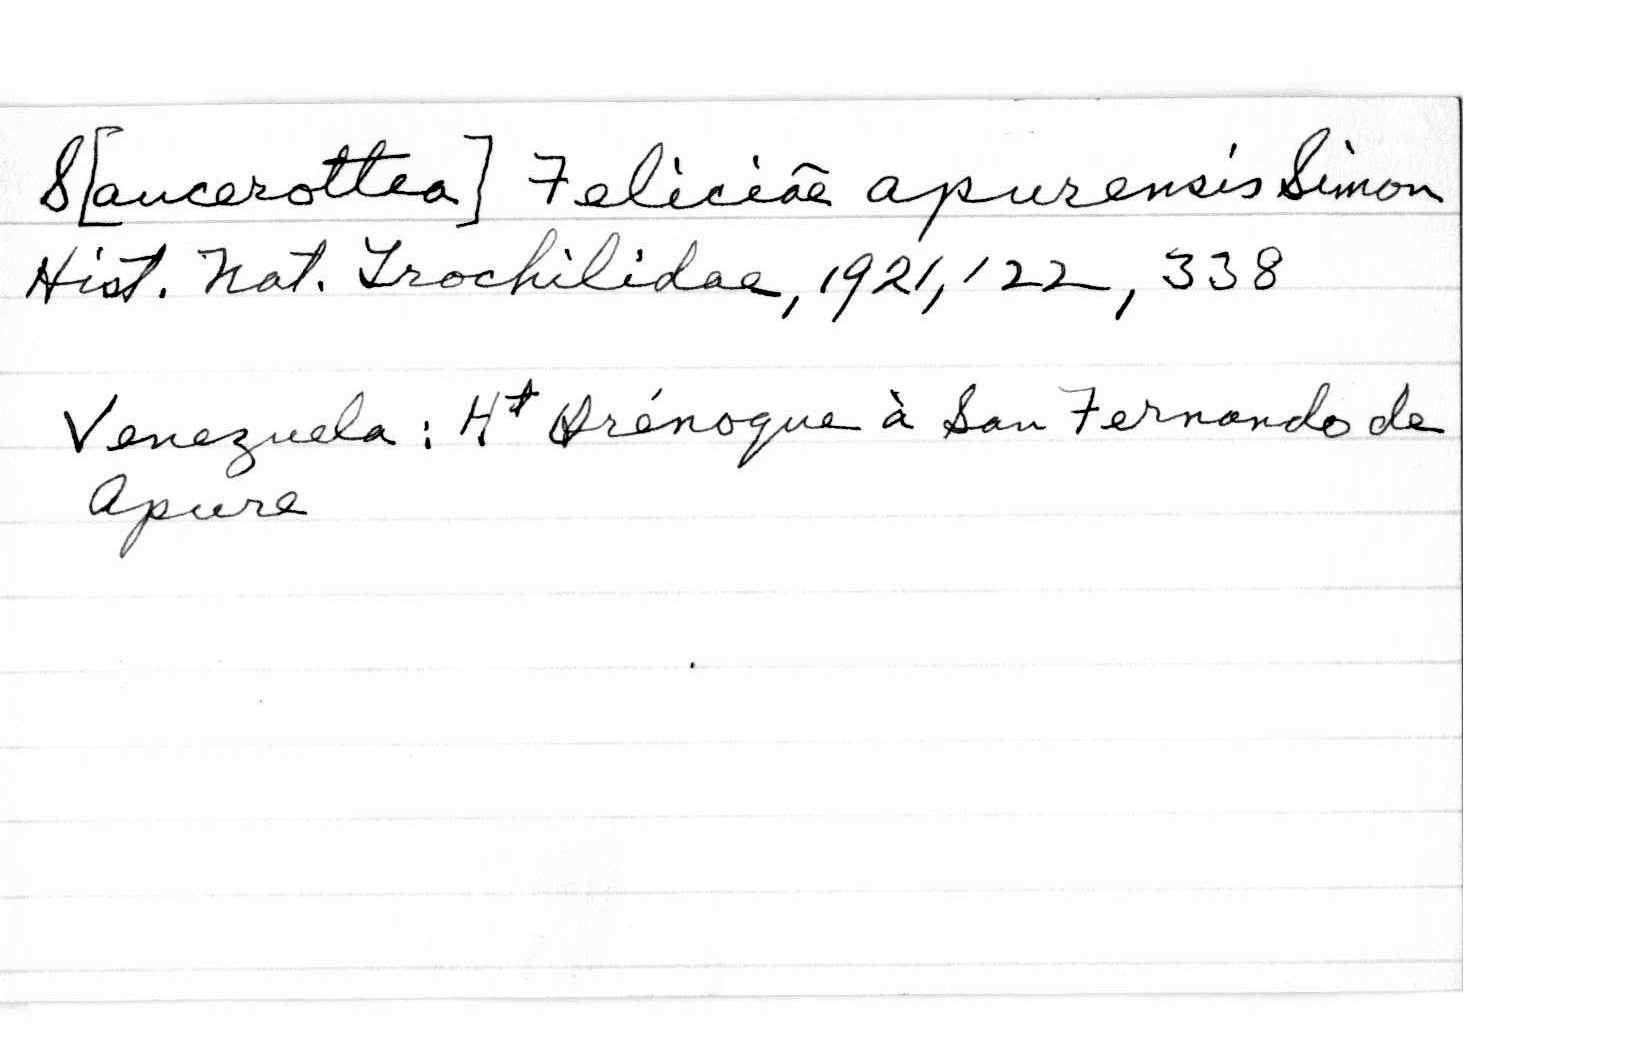 S[aucerottea] Feliciæ apurensis Simon
Hist. Nat. Trochilidae, 1921, 122, 338
Venezuela: Ht Orénoque à San Fernando de
Apure